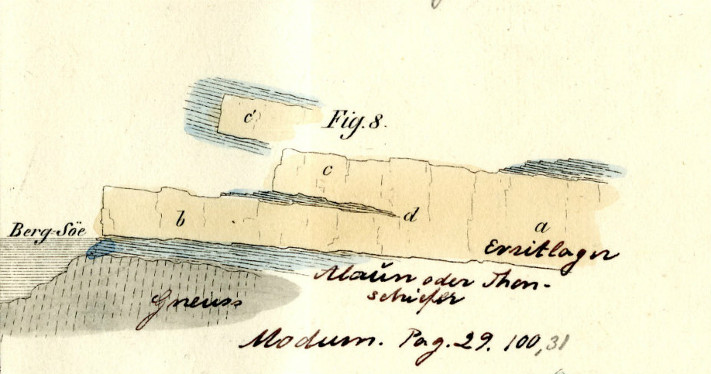 c'
Fig. 8.
c
Berg-Söe
b
d
a
Eritlager
Alaun oder Thon-
schiefer
Gneuss
Modum. Pag. 29. 100, 31